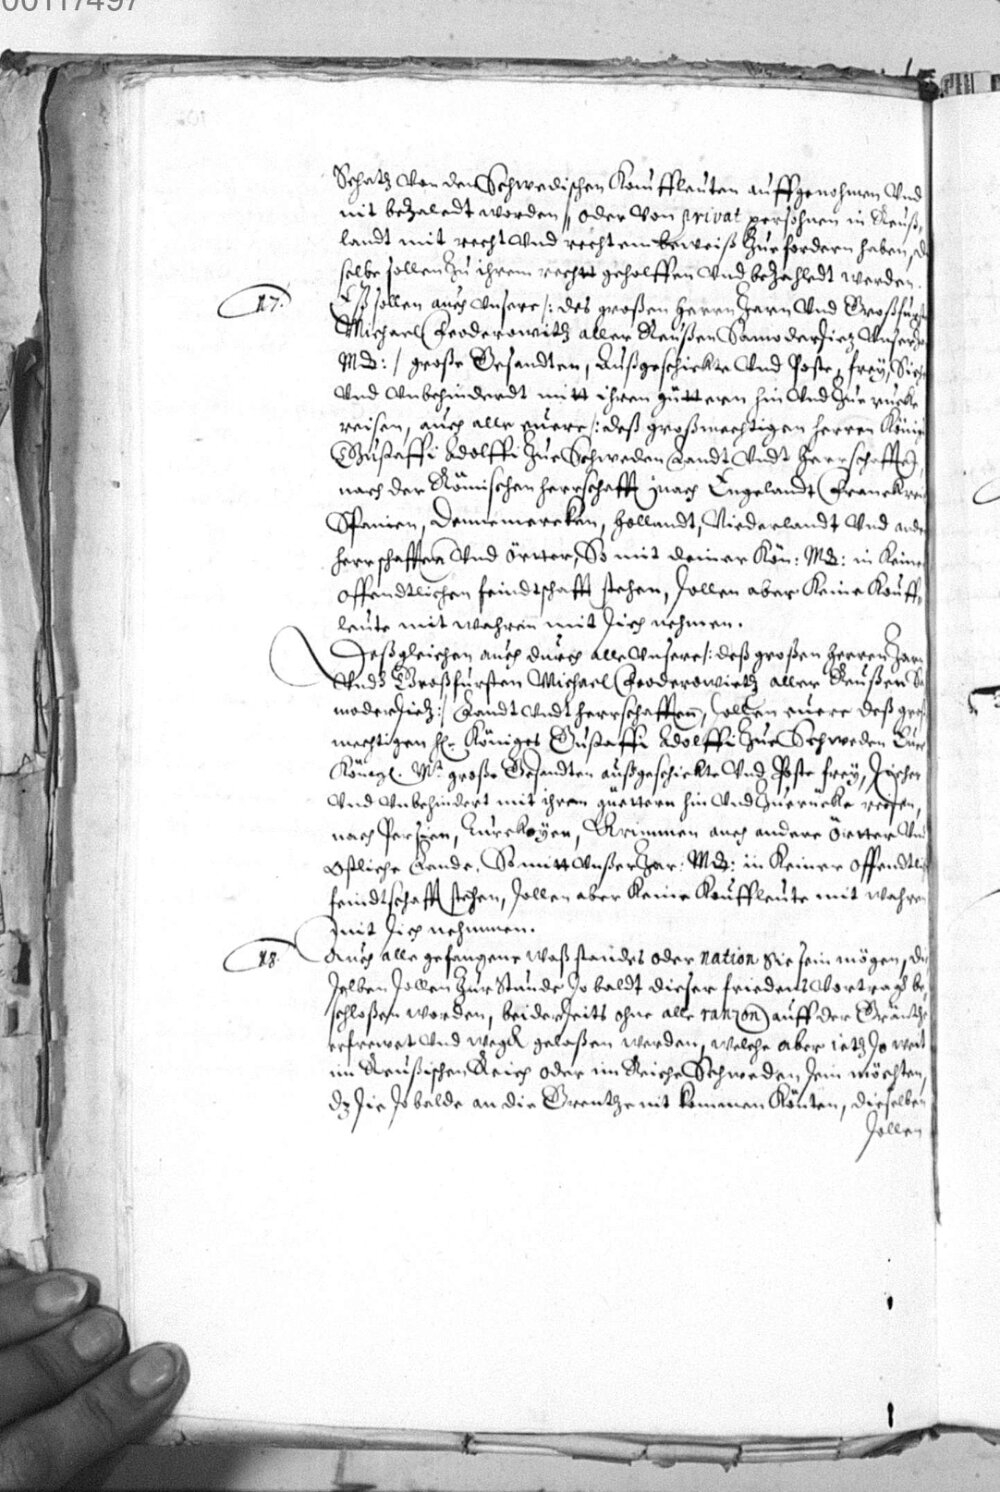 00117497
Schatz von den Schwedischen Kauffleuten auffgenohmen vnd
nit bezaledt worden, oder von privat persohnen in Reuß-
landt mit recht vnd rechtem beweiß zue fordern haben, die
selbe sollen zu ihrem recht geholffen vnd bezahledt werden.
17. Eß sollen auch vnsere /: des großen herrn Zarn vnd Großfürsten
Michael Feoderowitz aller Reußen Samoderzietz vnser Zar
Mtt: / große Gesandten, außgeschickte vnd Poste, frey, Sicher
vnd vnbehinderdt mitt ihren güttern hin vnd zue rucke
reisen, auch alle euere /: deß großmechtigen herren König
Gustaffi Adolffi zue Schweden Landt vndt herrschafften,
nach der Römischen herrschafft, nach Engelandt Franckreich
Spanien, Dennemercken, Hollandt, Niederlandt vnd andere
herrschafften vnd örtter, So mit deiner Kön: Mtt: in keiner
offendtlichen feindtschafft stehen, sollen aber keine Kauff-
leute mit wahren mit sich nehmen.
Deßgleichen auch durch alle vnsere /: deß großen herren Zarn
vnd Großfürsten Michael Feoderowietz aller Reußen Sa
moderzietz :/ Landt vndt herrschafften, sollen euere deß groß
mechtigen H. Königes Gustaffi Adolffi zue Schweden Euer
Königl. Mtt große Gesandten außgeschickte vnd Poste frey, sicher
vnd vnbehindert mit ihren güettern hin vnd zuerücke reisen,
nach Persien, Turckeyen, Krimmen auch andere Örtter vnd
östliche Lande, So mitt vnßer Zar: Mtt: in keiner offendtlich
feindtschafft stehen, sollen aber keine Kauffleute mit wahren
mit sich nehmmen.
18. Auch alle gefangene waß standes oder nation sie sein mögen, die
selben sollen zur stunde so baldt dieser friedens Vortragh be-
schloßen worden, beiderseits ohne alle ranzon auff der Gräntze
erfreiwet vnd wegk gelaßen werden, welche aber ietz so weit
im Reußischen Reich oder im Reiche Schweden sein möchten,
dz sie so balde an die Grentze nit kommen könten, dieselben
sollen